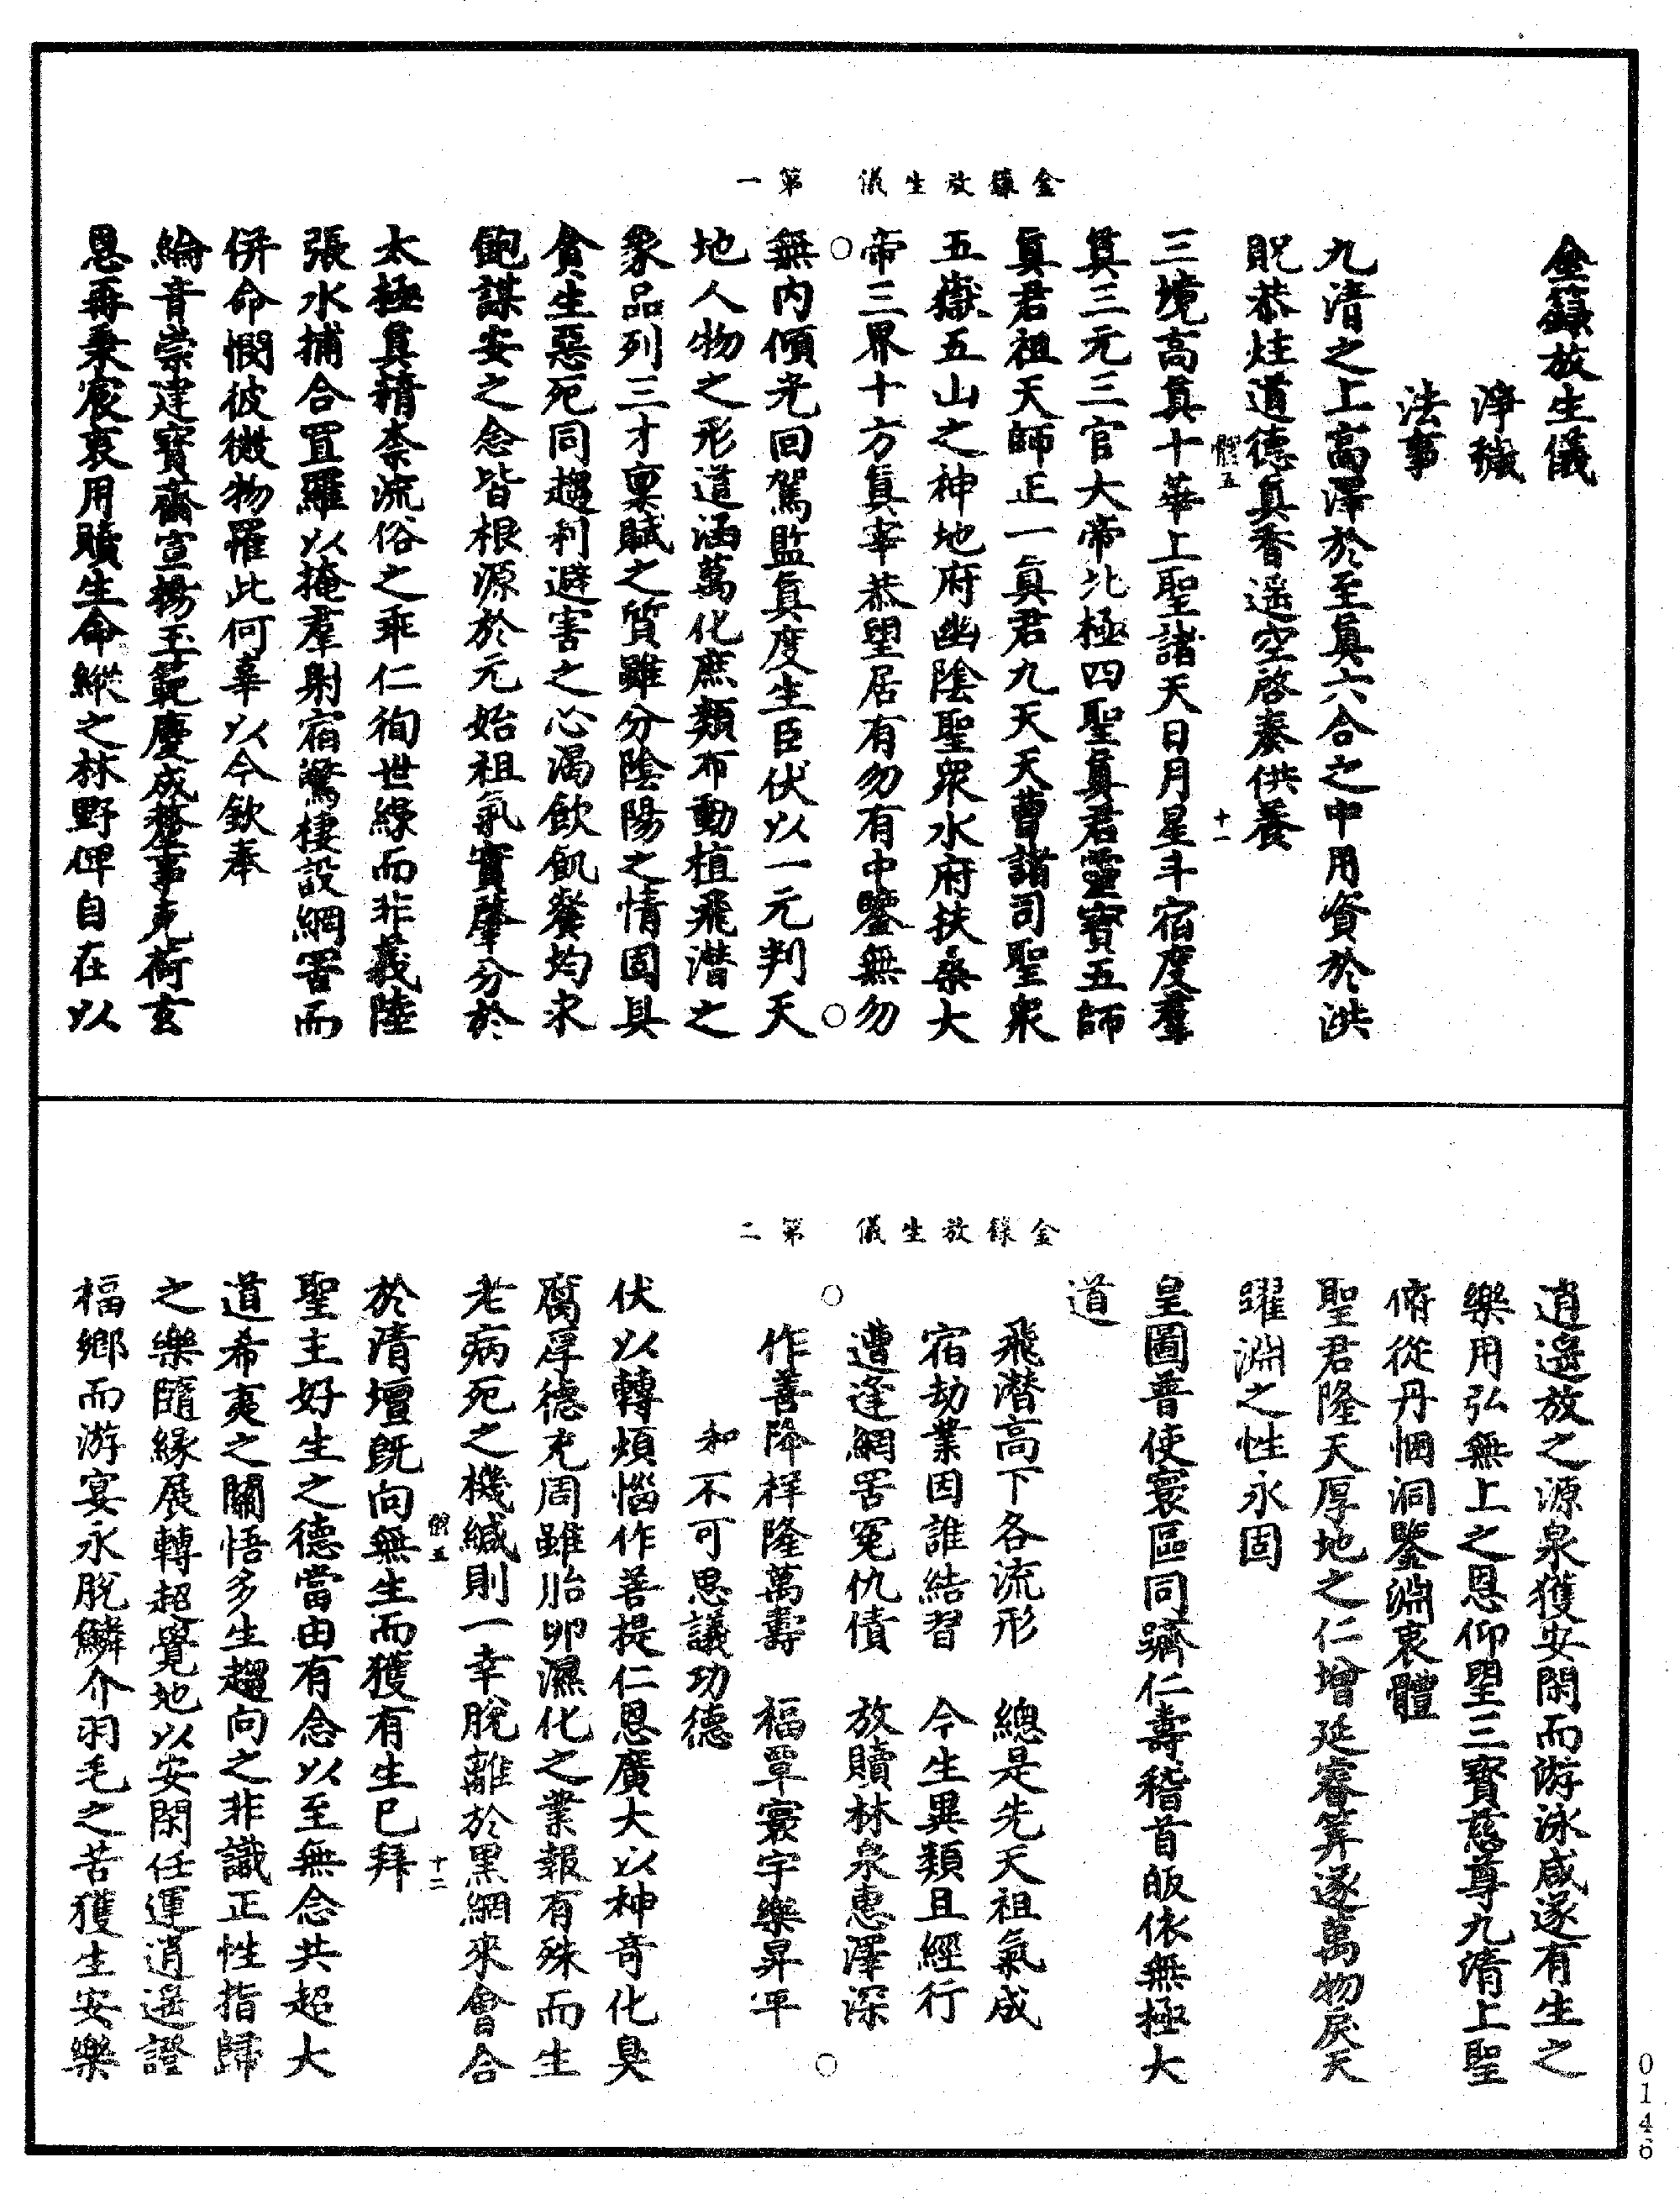 金籙放生儀　第一
金籙放生儀
淨穢
法事
九清之上高澤於至真六合之中用資於洪
貺恭炷道德真香遥空啓奏供養
體五　十一
三境高真十華上聖諸天日月星斗宿度羣
真三元三官大帝北極四聖真君靈寶五師
真君祖天師正一真君九天天曹諸司聖衆
五嶽五山之神地府幽陰聖衆水府扶桑大
帝三界十方真宰恭望居有勿有中鑒無勿
無内傾光回駕監真度生臣伏以一元判天
地人物之形道涵萬化庶類布動植飛潛之
象品列三才稟賦之質雖分陰陽之情固具
貪生惡死同趨利避害之心渴飲飢餐均求
飽謀安之念皆根源於元始祖氣實肇分於
太極真精柰流俗之乖仁徇世緣而非義陸
張水捕合罝羅以掩羣射宿驚棲設網罟而
併命憫彼微物罹此何辜以今欽奉
綸音崇建寶齋宣揚玉範慶成釐事克荷玄
恩再秉宸衷用贖生命縱之林野俾自在以
金籙放生儀　第二
逍遥放之源泉獲安閑而游泳咸遂有生之
樂用弘無上之恩仰望三寶慈尊九清上聖
俯從丹悃洞鑒淵衷體
聖君隆天厚地之仁增延睿筭遂萬物戾天
躍淵之性永固
皇圖普使寰區同躋仁壽稽首皈依無極大
道
飛潛高下各流形　總是先天祖氣成
宿劫業因誰結習　今生異類且經行
遭逢網罟冤仇債　放贖林泉惠澤深
作善降祥隆萬壽　福覃寰宇樂昇平
和不可思議功德
伏以轉煩惱作菩提仁恩廣大以神奇化臭
腐厚德充周雖胎卵濕化之業報有殊而生
老病死之機緘則一幸脫離於黑網來會合
體五　十二
於清壇旣向無生而獲有生已拜
聖主好生之德當由有念以至無念共超大
道希夷之關悟多生趨向之非識正性指歸
之樂隨緣展轉超覺地以安閑任運逍遥證
福鄉而游宴永脫鱗介羽毛之苦獲生安樂
0146